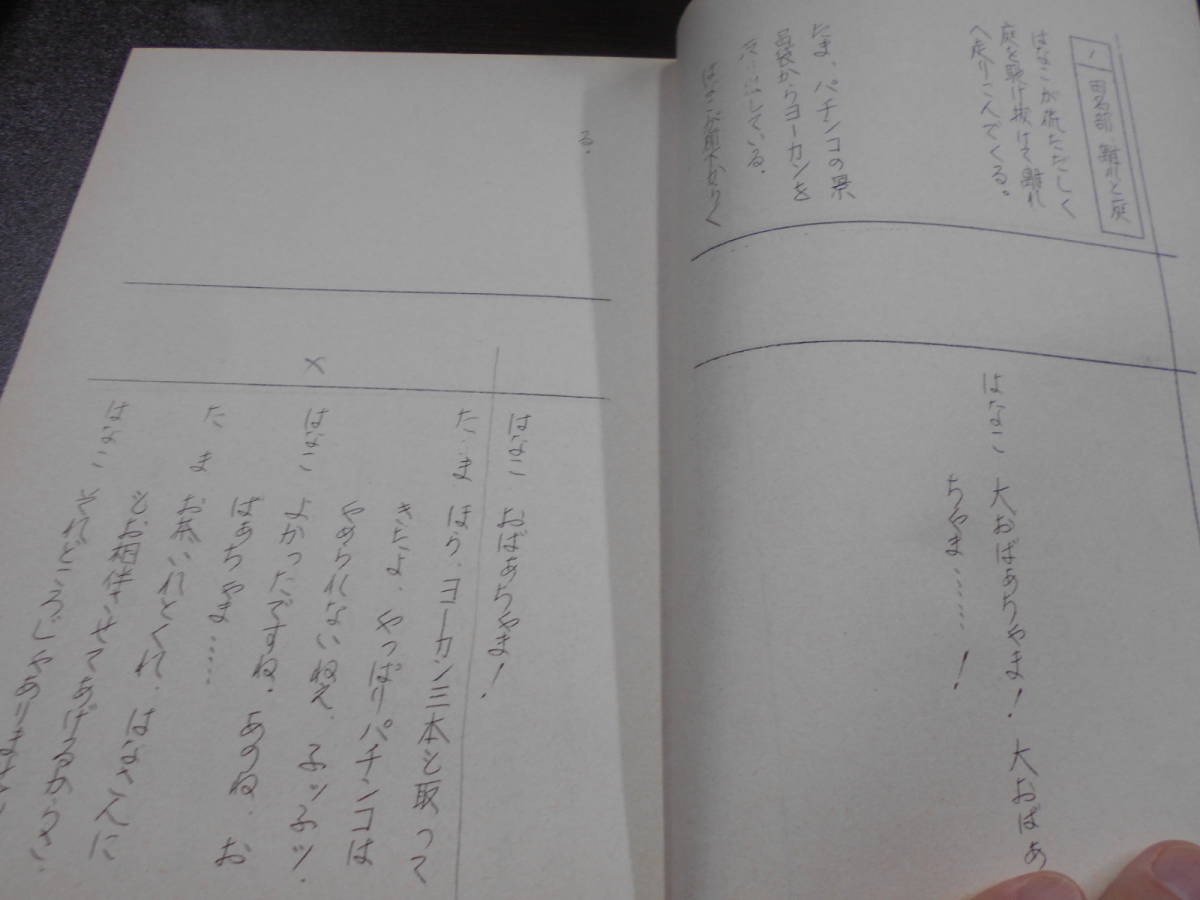 1 田名部 離れと庭
はなこが慌ただしく
庭を駆け抜けて離れ
へ走りこんでくる。
たま、パチンコの景
品袋からヨーカンを
している。
はなこ 大おばあちゃま!大おばあ
ちゃま……!
る。
はなこ おばあちゃま!
たま ほら、ヨーカン三本と取って
きたよ、やっぱりパチンコは
やめられないねえ、
はなこ よかったですね。あのね、お
ばあちゃま……
たま お茶いれとくれ、はなこに
ご相伴させてあげるからさ、
はなこ それどころじゃありません